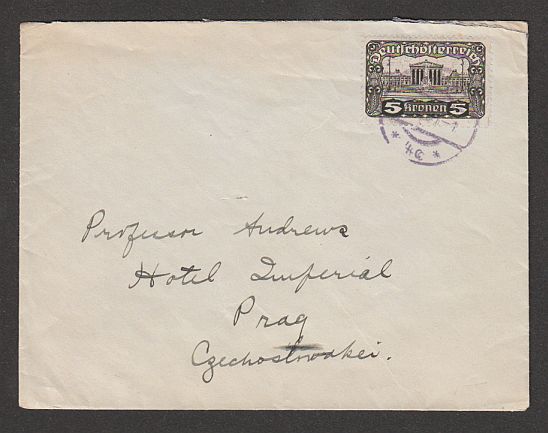 Deutschösterreich
5 Kronen 5
* 4e *
Professor Andrews
Hotel Imperial
Prag
Czechoslovakei.